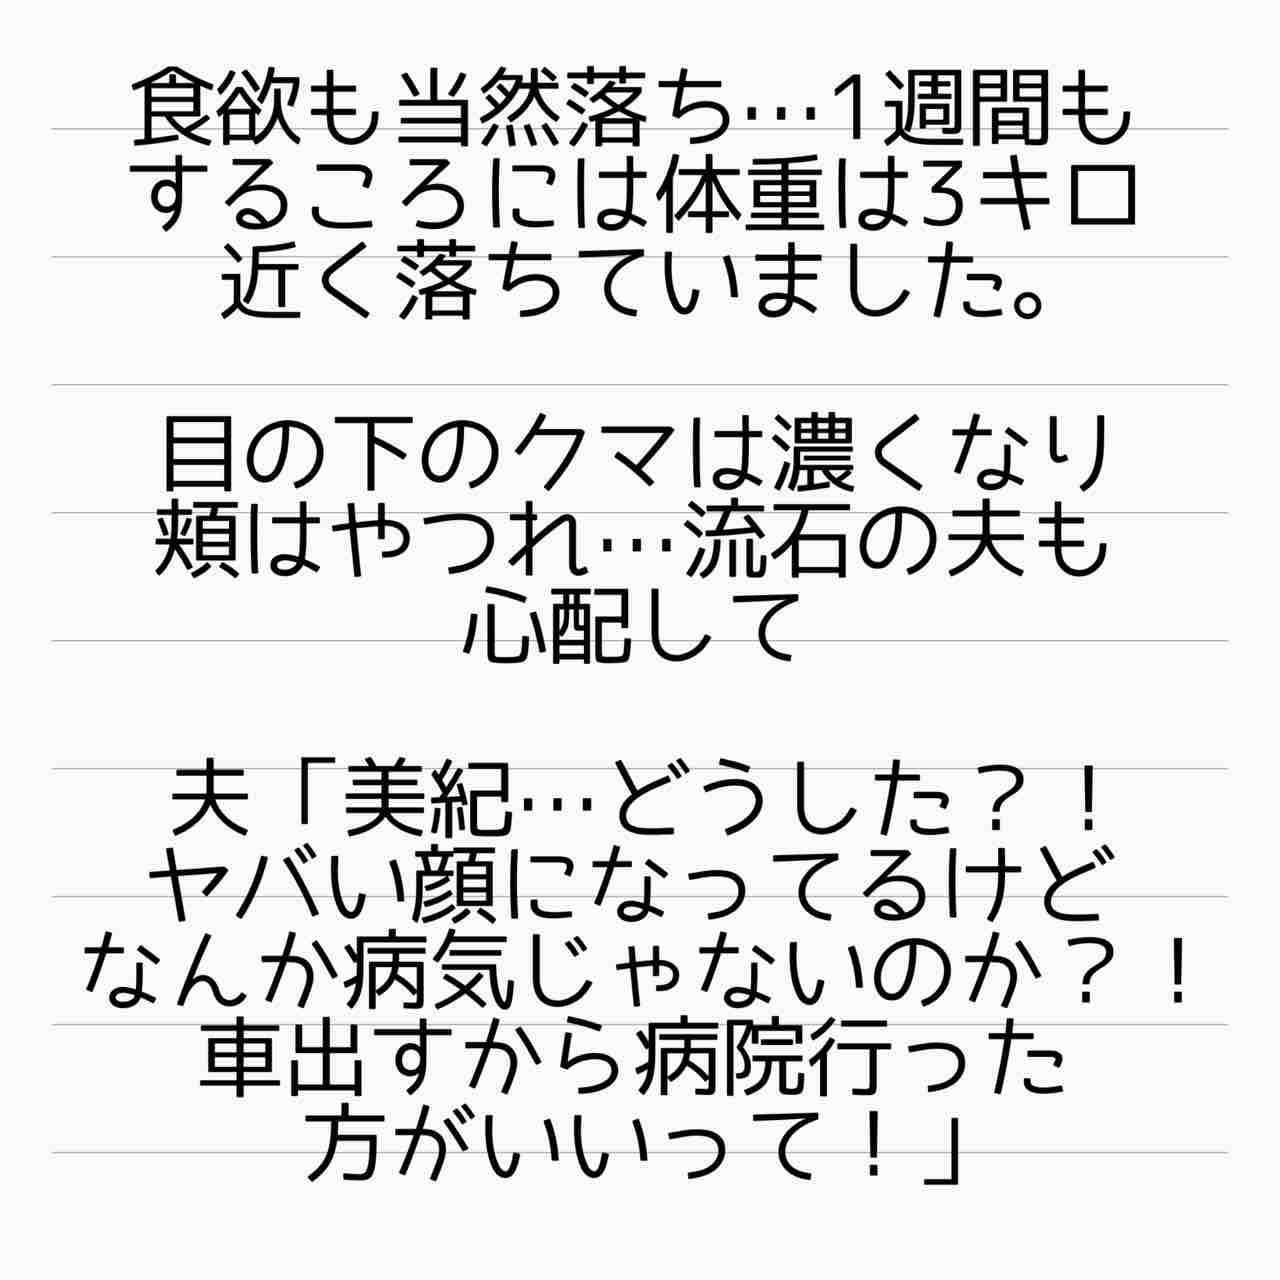 食欲も当然落ち…1週間も
するころには体重は3キロ
近く落ちていました。
目の下のクマは濃くなり
頬はやつれ…流石の夫も
心配して
夫「美紀…どうした？！
ヤバい顔になってるけど
なんか病気じゃないのか？！
車出すから病院行った
方がいいって！」